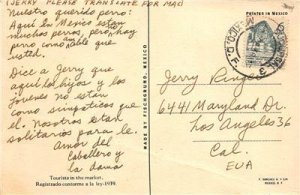 (JERRY PLEASE TRANSLATE FOR MAC)
Nuestro querido perro:
Aquí en Mexico estan
muchos perros, pero hay
perro como able que
usted.
Dice a Jerry que
aquí los hijos y los
jovenes no estan
como simpaticos que
el. Nosotros estan
solitarios para le.
Amor del
Caballero y
la dama
Tourists in the market.
Registrado conforme a la ley-1939.
MADE BY FISCHGRUND, MEXICO
PRINTED IN MEXICO
Jerry Ringer
6441 Maryland Dr.
Los Angeles 36
Cal.
EUA
MEXICO, D. F.